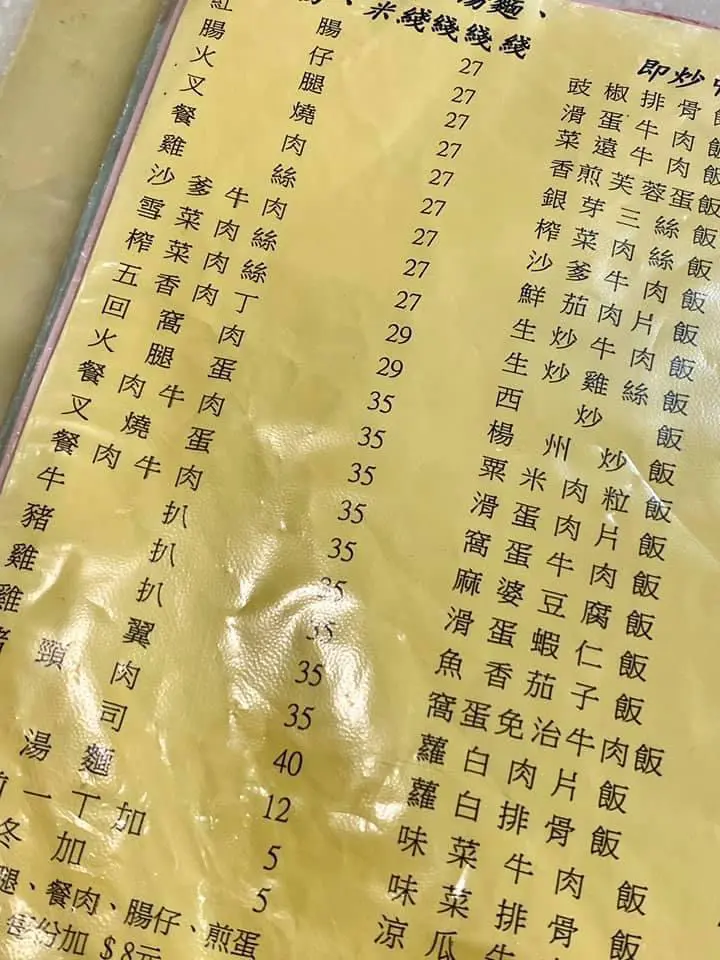 湯麵、
、米綫綫綫綫
紅腸 27
腸仔 27
火腿 27
叉燒 27
餐肉 27
雞絲 27
沙爹牛肉 27
雪菜肉絲 27
榨菜肉絲 27
五香肉丁 29
回窩肉 29
火腿蛋 35
餐肉牛肉 35
叉燒蛋 35
餐肉牛肉 35
牛扒 35
豬扒 35
雞扒 35
雞翼 35
豬頸肉 35
司 40
湯麵 12
一丁加 5
冬加 5
腿、餐肉、腸仔、煎蛋
每份加 $8元
即炒
豉椒排骨飯
滑蛋牛肉飯
菜遠牛肉飯
香煎芙蓉蛋飯
銀芽三絲飯
榨菜肉絲飯
沙爹牛肉飯
鮮茄肉片飯
生炒牛肉飯
生炒雞絲飯
西炒飯
楊州炒飯
粟米肉粒飯
滑蛋肉片飯
窩蛋牛肉飯
麻婆豆腐飯
滑蛋蝦仁飯
魚香茄子飯
窩蛋免治牛肉飯
蘿白肉片飯
蘿白排骨飯
味菜牛肉飯
味菜排骨飯
涼瓜牛